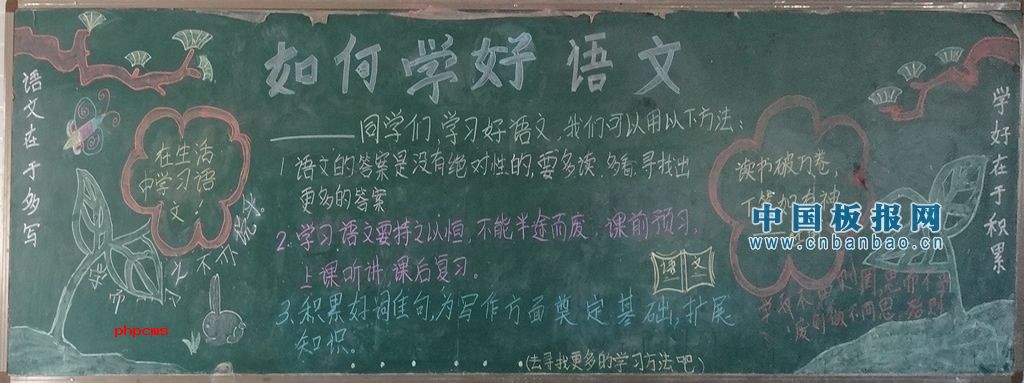 如何学好语文
语文在于多写
学好在于积累
在生活
中学习语
文！
同学们，学习好语文，我们可以用以下方法：
1.语文的答案是没有绝对性的，要多读、多看、寻找出
更多的答案
2.学习语文要持之以恒，不能半途而废，课前预习，
上课听讲，课后复习。
3.积累好词佳句，为写作方面奠定基础，扩展
知识。
(去寻找更多的学习方法吧)
语文
读书破万卷，
下笔如有神
中国板报网
www.cnbanbao.cn
phpcms